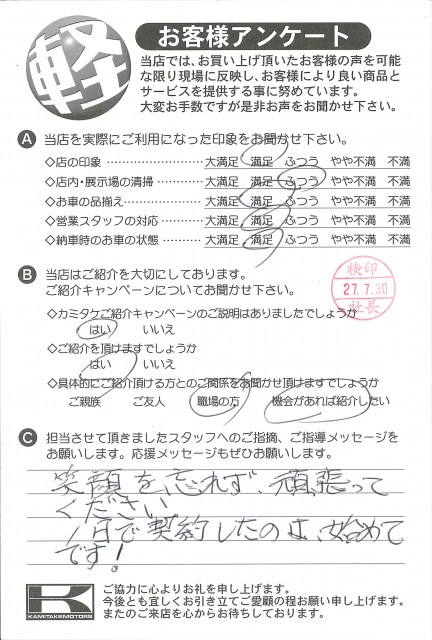 軽
お客様アンケート
当店では、お買い上げ頂いたお客様の声を可能
な限り現場に反映し、お客様により良い商品と
サービスを提供する事に努めています。
大変お手数ですが是非お声をお聞かせ下さい。
A 当店を実際にご利用になった印象をお聞かせ下さい。
◇店の印象 …………………… 大満足 満足 ふつう やや不満 不満
◇店内・展示場の清掃………… 大満足 満足 ふつう やや不満 不満
◇お車の品揃え………………… 大満足 満足 ふつう やや不満 不満
◇営業スタッフの対応 ………… 大満足 満足 ふつう やや不満 不満
◇納車時のお車の状態 ………… 大満足 満足 ふつう やや不満 不満
B 当店はご紹介を大切にしております。
ご紹介キャンペーンについてお聞かせ下さい。
◇カミタケご紹介キャンペーンのご説明はありましたでしょうか
はい いいえ
◇ご紹介を頂けますでしょうか
はい いいえ
◇具体的にご紹介頂ける方とのご関係をお聞かせ頂けますでしょうか
ご親族 ご友人 職場の方 機会があれば紹介したい
検印
27.7.30
社長
C 担当させて頂きましたスタッフへのご指摘、ご指導メッセージを
お願いします。応援メッセージもぜひお願いします。
笑顔を忘れず、頑張って
ください
1日で契約したのは、始めて
です!
K
KAMITAKEMOTORS
ご協力に心よりお礼を申し上げます。
今後とも宜しくお引き立てご愛顧の程お願い申し上げます。
またのご来店を心からお待ちしております。